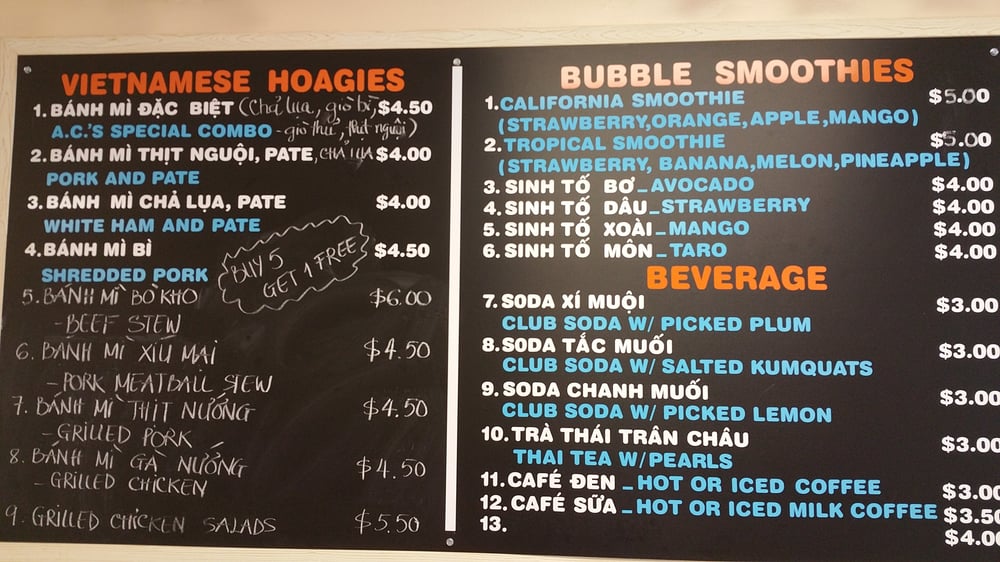 VIETNAMESE HOAGIES
1. BÁNH MÌ ĐẶC BIỆT (Chả lụa, giò bì, $4.50
A.C.'S SPECIAL COMBO - giò thủ, thịt nguội)
2. BÁNH MÌ THỊT NGUỘI, PATE, CHẢ LỤA $4.00
PORK AND PATE
3. BÁNH MÌ CHẢ LỤA, PATE $4.00
WHITE HAM AND PATE
4. BÁNH MÌ BÌ $4.50
SHREDDED PORK
BUY 5
GET 1 FREE
5. BÁNH MÌ BÒ KHO $6.00
- BEEF STEW
6. BÁNH MÌ XIU MAI $4.50
- PORK MEATBALL STEW
7. BÁNH MÌ THỊT NƯỚNG $4.50
- GRILLED PORK
8. BÁNH MÌ GÀ NƯỚNG $4.50
- GRILLED CHICKEN
9. GRILLED CHICKEN SALADS $5.50
BUBBLE SMOOTHIES
1. CALIFORNIA SMOOTHIE $5.00
(STRAWBERRY,ORANGE,APPLE,MANGO)
2. TROPICAL SMOOTHIE $5.00
(STRAWBERRY, BANANA,MELON,PINEAPPLE)
3. SINH TỐ BƠ_AVOCADO $4.00
4. SINH TỐ DÂU_STRAWBERRY $4.00
5. SINH TỐ XOÀI_MANGO $4.00
6. SINH TỐ MÔN_TARO $4.00
BEVERAGE
7. SODA XÍ MUỘI $3.00
CLUB SODA W/ PICKED PLUM
8. SODA TẮC MUỐI $3.00
CLUB SODA W/ SALTED KUMQUATS
9. SODA CHANH MUỐI $3.00
CLUB SODA W/ PICKED LEMON
10. TRÀ THÁI TRÂN CHÂU $3.00
THAI TEA W/PEARLS
11. CAFÉ ĐEN _ HOT OR ICED COFFEE $3.00
12. CAFÉ SỮA _ HOT OR ICED MILK COFFEE $3.50
13. $4.00